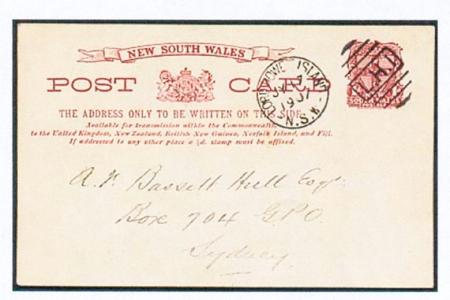 NEW SOUTH WALES
POST CARD
LORD HOWE ISLAND
N.S.W.
THE ADDRESS ONLY TO BE WRITTEN ON THIS SIDE.
Available for transmission within the Commonwealth,
to the United Kingdom, New Zealand, British New Guinea, Norfolk Island, and Fiji.
If addressed to any other place a ½d. stamp must be affixed.
A.F. Bassett Hull Esqr.
Box 704 G.P.O.
Sydney